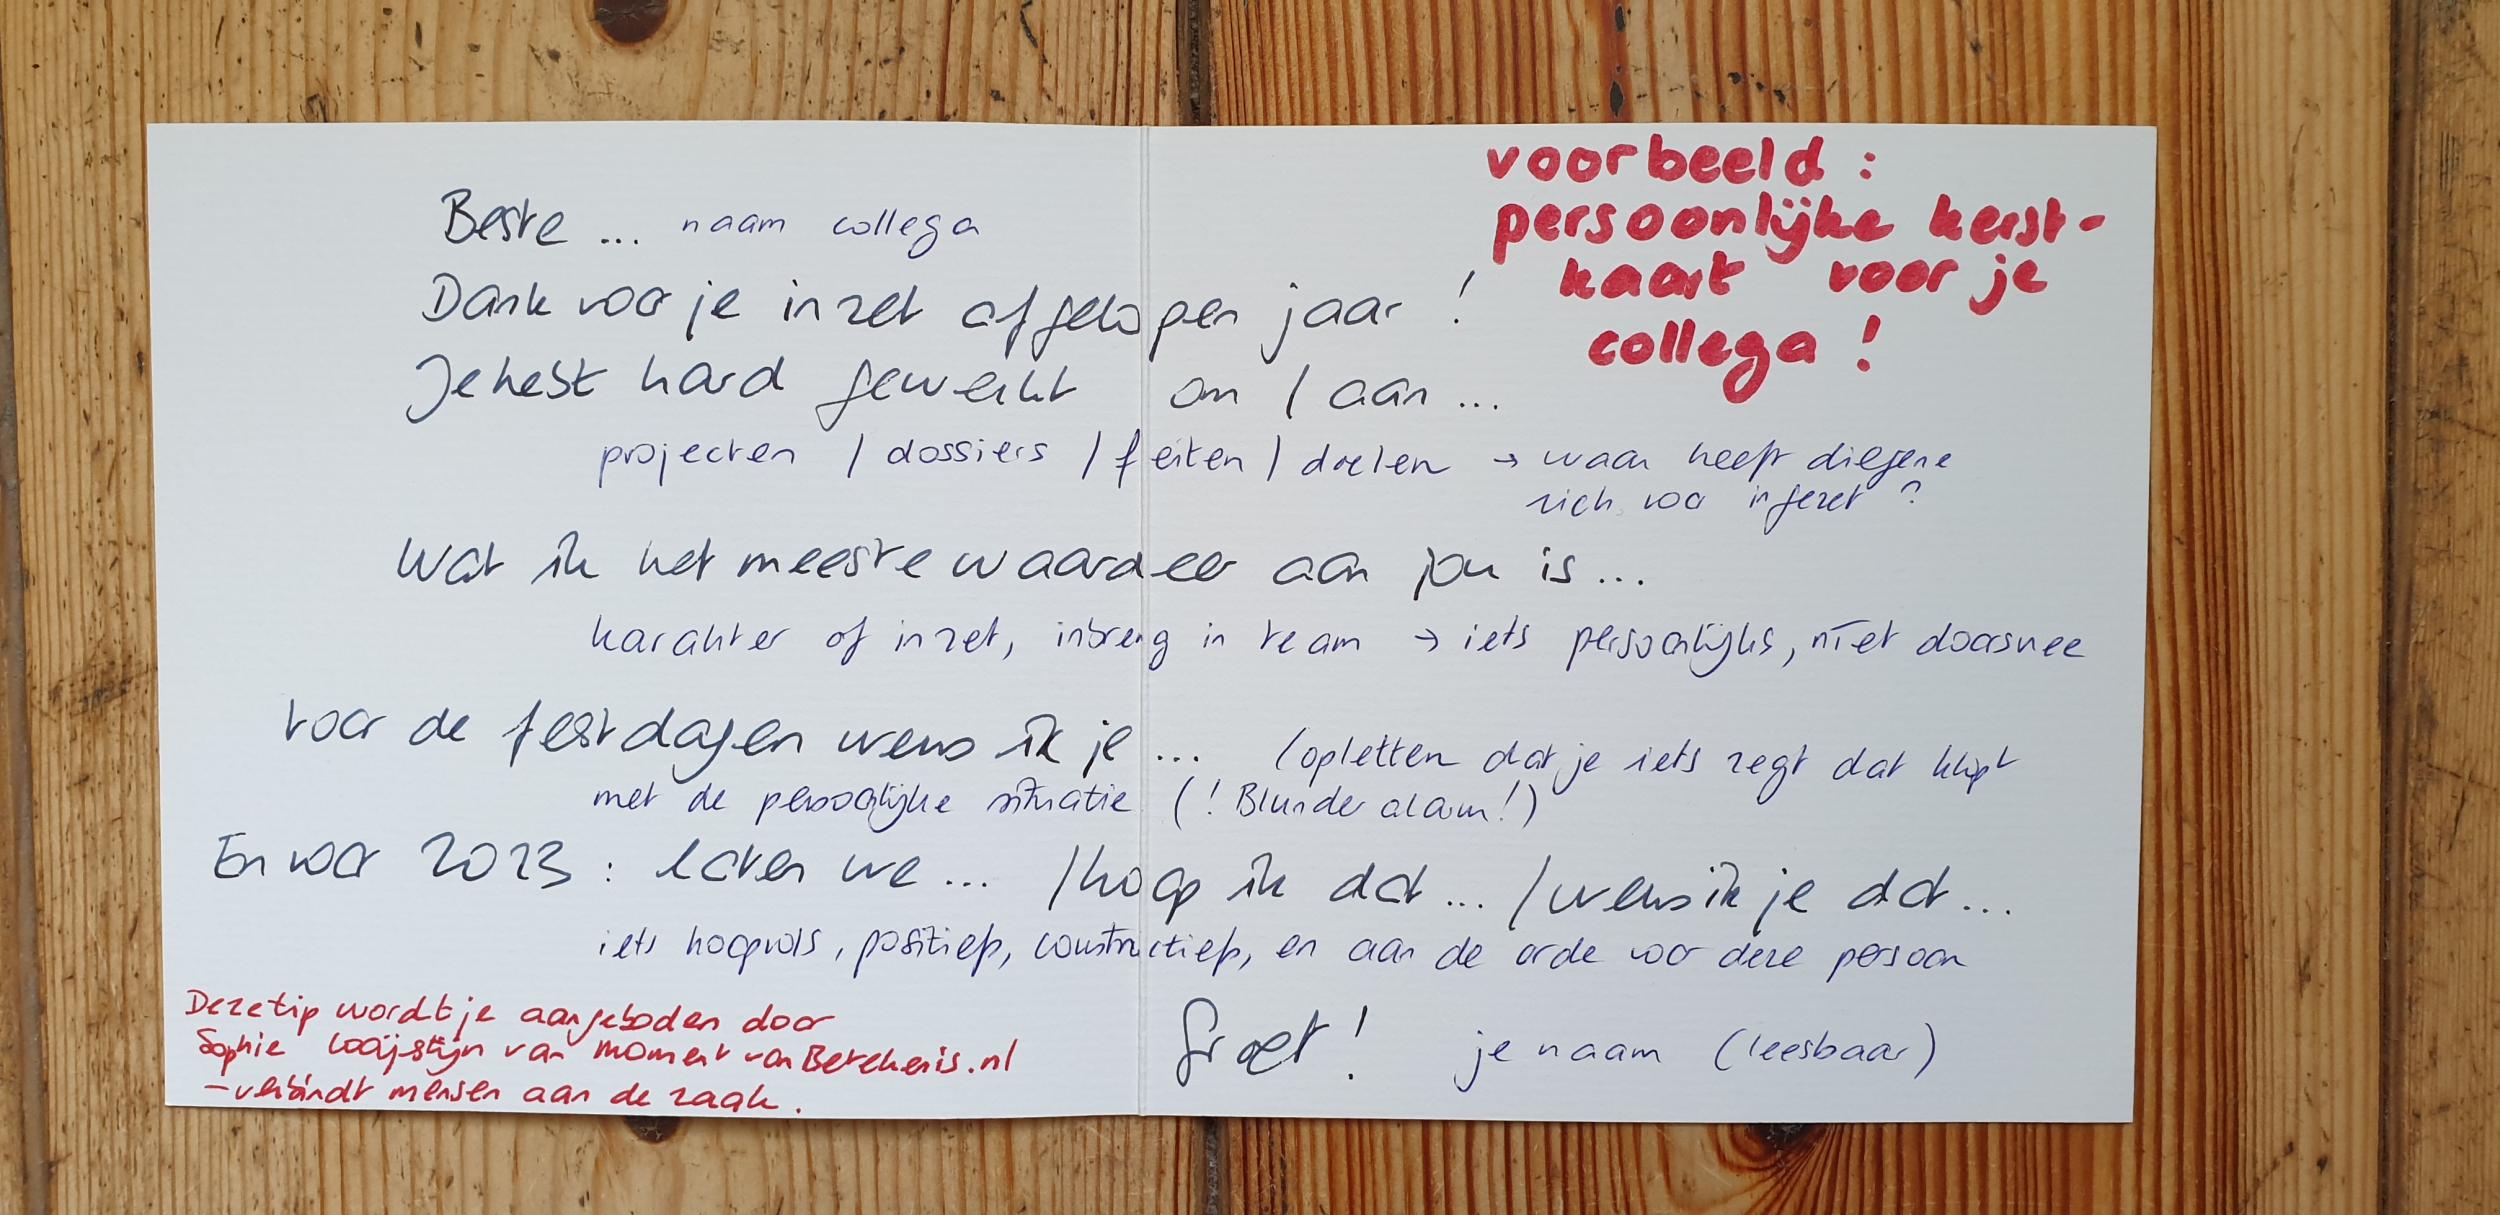 voorbeeld :
persoonlijke kerst-
kaart voor je
collega !
Beste ... naam collega
Dank voor je inzet afgelopen jaar !
Je hebt hard gewerkt om / aan ...
projecten / dossiers / feiten / doelen → waar heeft diegene
zich voor ingezet ?
Wat ik het meeste waardeer aan jou is ...
karakter of inzet, inbreng in team → iets persoonlijks, niet doorsnee
Voor de feestdagen wens ik je ... (opletten dat je iets zegt dat klopt
met de persoonlijke situatie (! Blunder alarm !)
En voor 2023 : laten we ... / hoop ik dat ... / wens ik je dat ...
iets hoopvols, positiefs, constructiefs, en aan de orde voor deze persoon
Groet ! je naam (leesbaar)
Deze tip wordt je aangeboden door
Sophie van Moment van Betekenis.nl
- verbindt mensen aan de zaak.